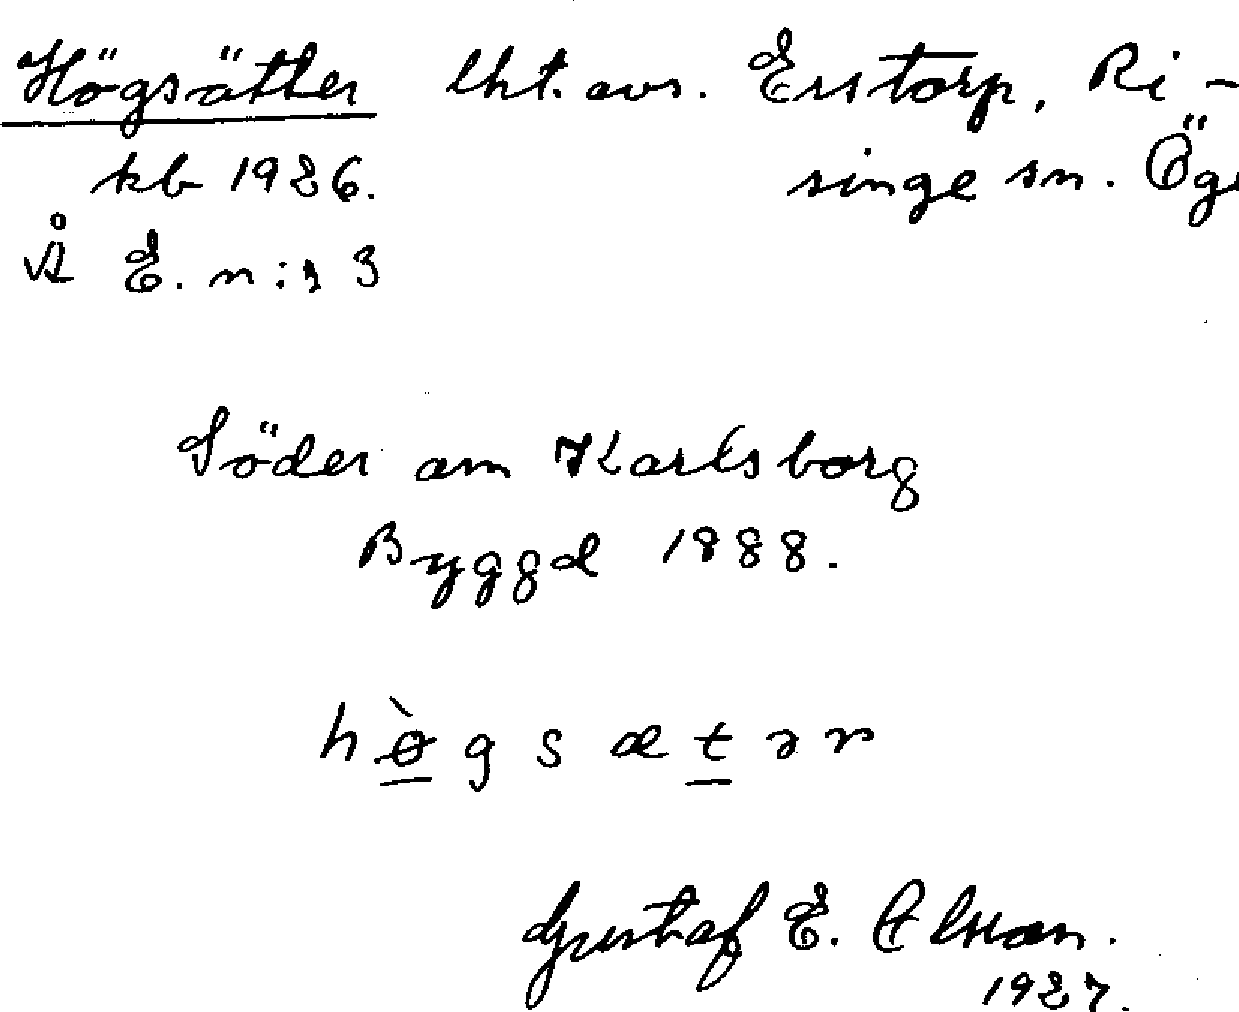 Högsätter lht. avs. Erstorp, Ri-
kb 1926. singe sn. Ög
Å E. n:r 3
Söder om Karlsborg
Byggd 1888.
hø̀gsætər
Gustaf E. Olsson.
1927.